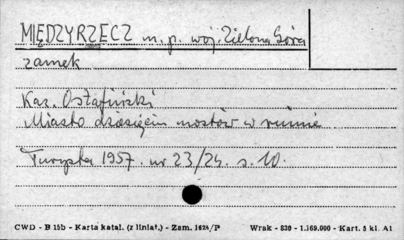 MIĘDZYRZECZ m. p. woj. Zielona Góra
zamek
Kaz. Ostafiński
Miasto dziesięciu mostów w ruinie
Turysta 1957. nr 23/24. s. 10.
CWD - B 15b - Karta katal. (z liniat.) - Zam. 162A/P Wrak - 830 - 1.169.000 - Kart. 5 kl. A1